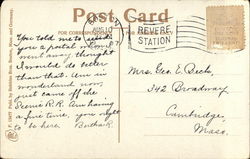 Post Card
REVERE
STATION
You told me to send
you a postal when I
went away thought
I would do better
than that. Am in
wonderland now,
just came off the
Scenic R.R. Am having
a fine time, you ought
to be here. Bertha R.
Mrs. Geo. E. Beck,
342 Broadway
Cambridge,
Mass.